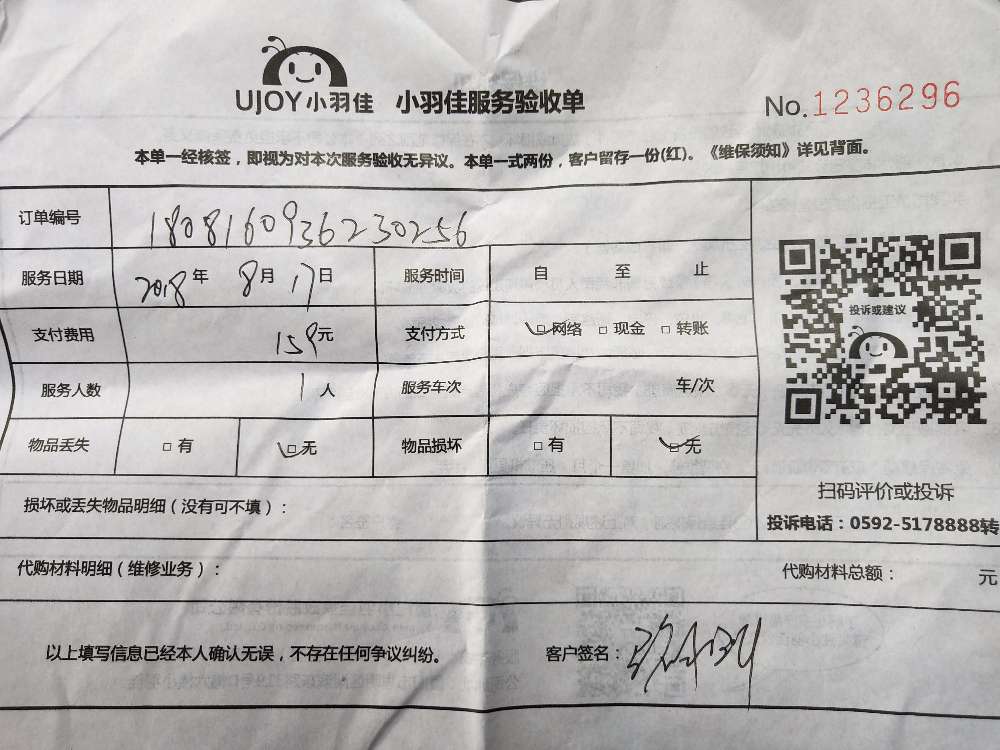 UJOY小羽佳 小羽佳服务验收单 No.1236296
本单一经核签，即视为对本次服务验收无异议。本单一式两份，客户留存一份(红)。《维保须知》详见背面。
订单编号 18081609362302​56
服务日期 2018年8月17日 服务时间 自 至 止
投诉或建议
支付费用 158元 支付方式 网络 现金 转账
服务人数 1人 服务车次 车/次
物品丢失 有 无 物品损坏 有 无
扫码评价或投诉
损坏或丢失物品明细（没有可不填）：
投诉电话：0592-5178888转
代购材料明细（维修业务）： 代购材料总额： 元
以上填写信息已经本人确认无误，不存在任何争议纠纷。 客户签名：